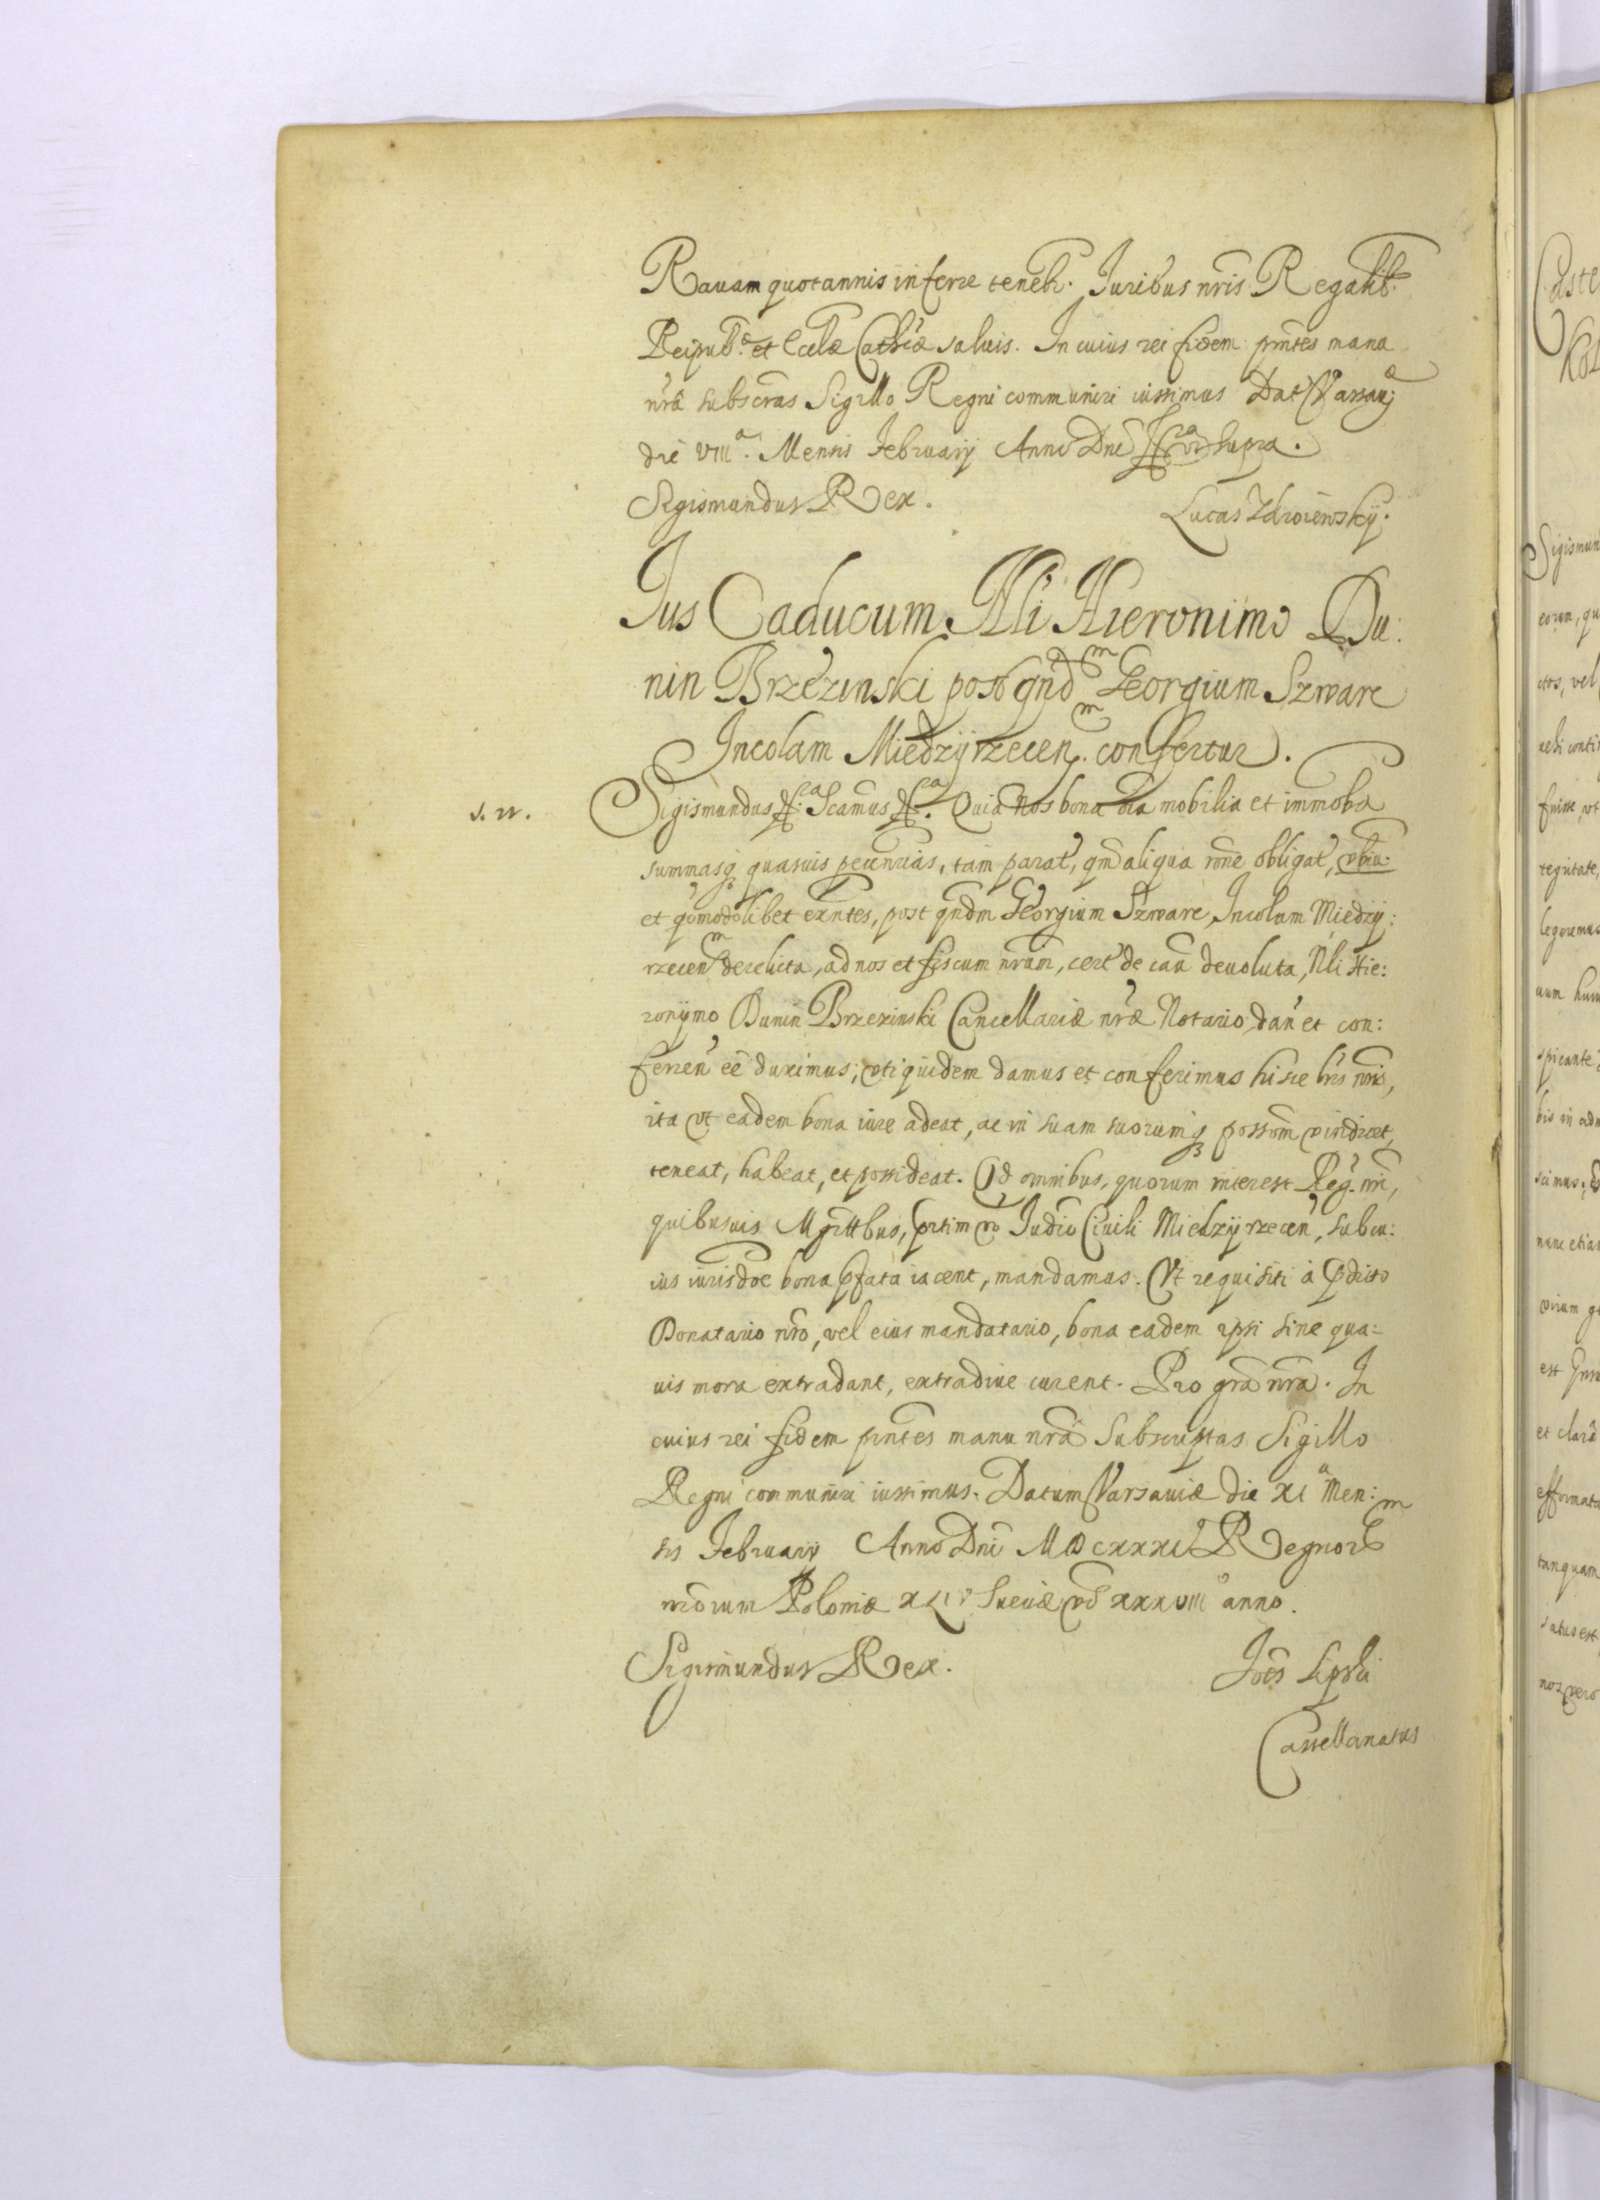 Rauam quotannis inferre teneb̃r. Iuribus nr̃is Regalib9
Reipub. et Eccl̃æ Cath̃cæ saluis. In cuius rei fidem pñtes manu
nr̃a subscr̃as Sigillo Regni communiri iussimus Dat Varsauiæ
die VIIIa. Mensis February Anno Dñi &ca vt supra.
Sigismundus Rex. Lucas Zdroiewsky.
Ius Caducum Nli Hieronimo Du:
nin Brzezinski post qñdm Georgium Szware
Incolam Miedzyrzecenm. confertur.
s. n. Sigismundus &ca. Scamus &ca. Quia Nos bona oĩa mobilia et immob̃a
summasq quasuis pecun̄rias, tam parat, qm̃ aliqua rõne obligat, vbiu:
et qomodolibet exñtes, post qñdm Georgium Szware, Incolam Miedzy:
rzecenm derelicta, ad nos et fiscum nr̃um, cert de cau deuoluta, Nli Hie:
ronymo Dunin Brzezinski Cancellariæ nr̃æ Notario dan et con:
feren eẽ duximus; vti quidem damus et conferimus hisce lr̃is nr̃is,
ita vt eadem bona iure adeat, ac in suam suorumq possom̃ vindicet,
teneat, habeat, et possideat. Qd omnibus, quorum interest Reg. nr̃i,
quibusuis Mgrttbus, pr̃tim vo Iudic̃io Ciuili Miedzyrzecen, sub cu:
ius iurisdõe bona pfata iacent, mandamus. Vt requisiti à pdicto
Donatario nr̃o, vel eius mandatario, bona eadem ipsi sine qua-
uis mora extradant, extradiue curent. Pro gr̃a nr̃a. In
cuius rei fidem pñtes manu nr̃a Subscriptas Sigillo
Regni communiri iussimus. Datum Varsauiæ die XIa Men:
sis February Anno Dñi MDCXXXI Regnorm
nr̃orum Poloniæ XLIV Sueciæ vo XXXVIII anno.
Sigismundus Rex. Ioẽs Lipski
Castellanatus